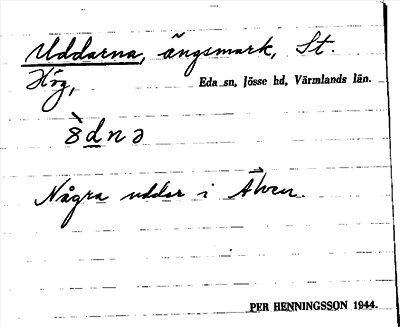 Uddarna, ängsmark, St.
Hög,
Eda sn, Jösse hd, Värmlands län.
Några uddar i Älven.
PER HENNINGSSON 1944.